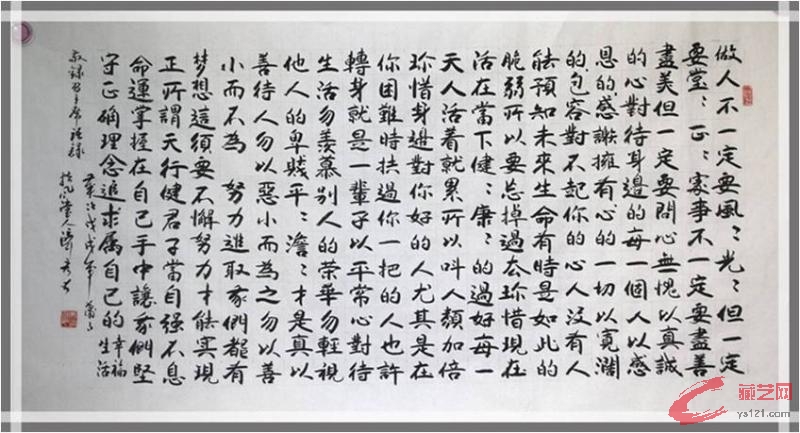 做人不一定要風：光：但一定
要堂：正：家事不一定要盡善
盡美但一定要問心無愧以真誠
的心對待身邊的每一個人以感
恩的感謝擁有心的一切以寬濶
的包容對不起你的心人沒有人
能預知未來生命有時是如此的
脆弱所以要忘掉過去珍惜現在
活在當下健：康：的過好每一
天人活着就累所以叫人類加倍
珍惜身邊對你好的人尤其是在
你困難時拱過你一把的人也許
轉身就是一輩子以平常心對待
生活勿羨慕別人的榮華勿輕視
他人的卑賤平：澹：才是真以
善待人勿以惡小而為之勿以善
小而不為 努力進取我們都有
夢想這須要不懈努力才能実現
正所謂天行健君子當自强不息
命運掌握在自己手中讓我們堅
守正确理念追求属自己的幸福生活
敬錄主席語錄
戊戌年
藏艺网
ys121.com